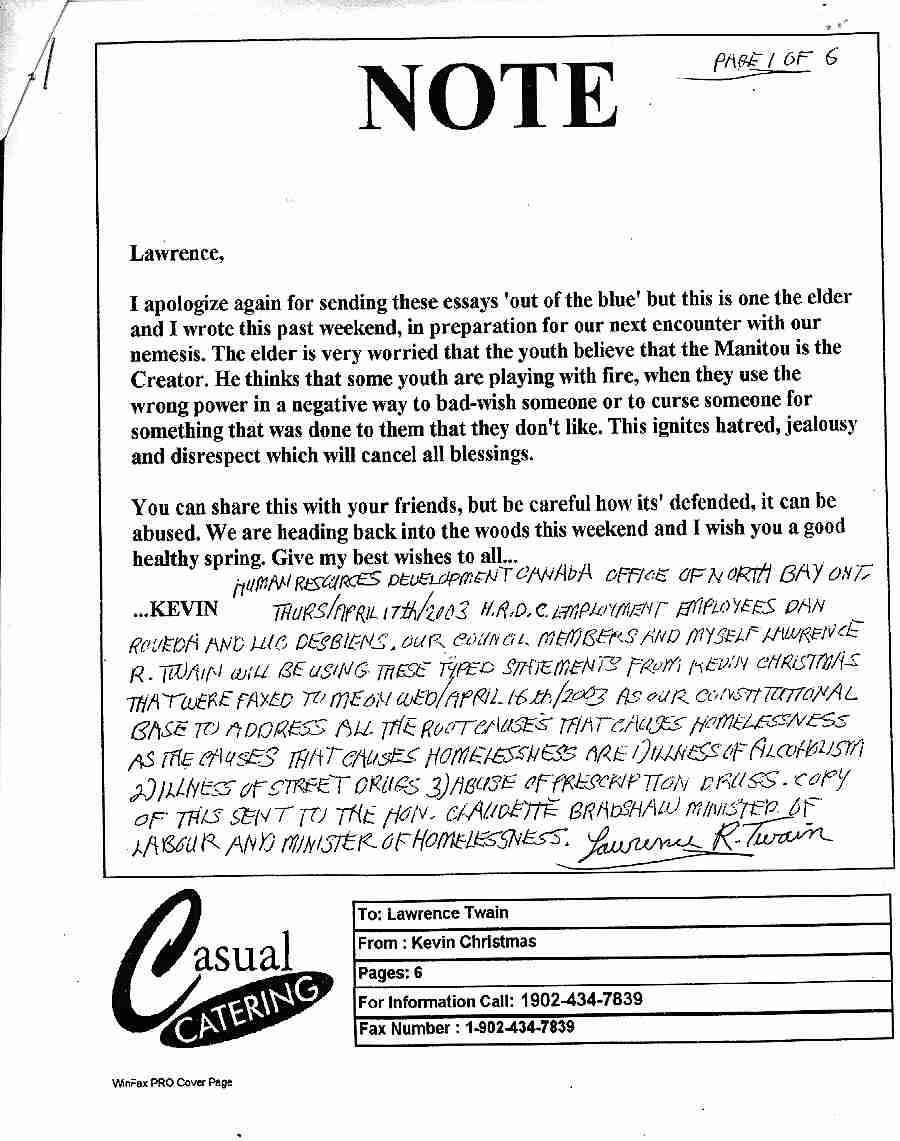 PAGE 1 OF 6
NOTE
Lawrence,
I apologize again for sending these essays 'out of the blue' but this is one the elder
and I wrote this past weekend, in preparation for our next encounter with our
nemesis. The elder is very worried that the youth believe that the Manitou is the
Creator. He thinks that some youth are playing with fire, when they use the
wrong power in a negative way to bad-wish someone or to curse someone for
something that was done to them that they don't like. This ignites hatred, jealousy
and disrespect which will cancel all blessings.
You can share this with your friends, but be careful how its' defended, it can be
abused. We are heading back into the woods this weekend and I wish you a good
healthy spring. Give my best wishes to all...
HUMAN RESOURCES DEVELOPMENT CANADA OFFICE OF NORTH BAY ONT,
...KEVIN THURS/APRIL 17th/2003 H.R.D.C. EMPLOYMENT EMPLOYEES DAN
ROVEDA AND LUC DESBIENS, OUR COUNCIL MEMBERS AND MYSELF LAWRENCE
R. TWAIN WILL BE USING THESE TYPED STATEMENTS FROM KEVIN CHRISTMAS
THAT WERE FAXED TO ME ON WED/APRIL 16th/2003 AS OUR CONSTITUTIONAL
BASE TO ADDRESS ALL THE ROOT CAUSES THAT CAUSES HOMELESSNESS
AS THE CAUSES THAT CAUSES HOMELESSNESS ARE 1) ILLNESS OF ALCOHOLISM
2) ILLNESS OF STREET DRUGS 3) ABUSE OF PRESCRIPTION DRUGS. COPY
OF THIS SENT TO THE HON. CLAUDETTE BRADSHAW MINISTER OF
LABOUR AND MINISTER OF HOMELESSNESS. Lawrence R. Twain
Casual
CATERING
To: Lawrence Twain
From : Kevin Christmas
Pages: 6
For Information Call: 1902-434-7839
Fax Number : 1-902-434-7839
WinFax PRO Cover Page